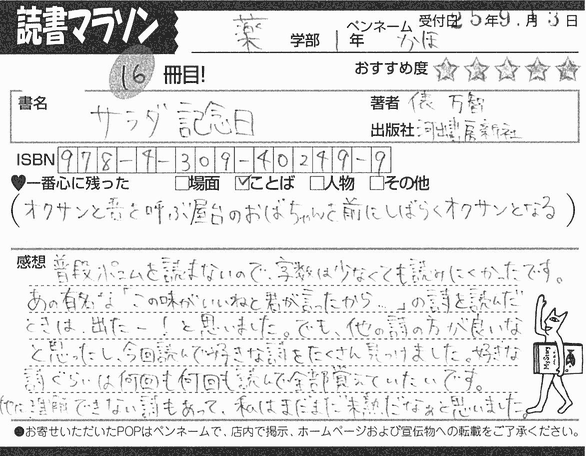 読書マラソン
薬 学部 1年 ペンネーム かほ 受付日 25年9月13日
16 冊目! おすすめ度 ☆☆☆☆☆
書名 サラダ記念日
著者 俵 万智
出版社 河出書房新社
ISBN 978-4-309-40249-9
♥一番心に残った □場面 ☑ことば □人物 □その他
(オクサンと吾を呼ぶ屋台のおばちゃんを前にしばらくオクサンとなる)
感想 普段ポエムを読まないので、字数は少なくても読みにくかったです。
あの有名な「この味がいいねと君が言ったから…」の詩を読んだ
ときは、出たー!と思いました。でも、他の詩の方が良いな
と思ったし、今回読んで好きな詩をたくさん見つけました。好きな
詩ぐらいは何回も何回も読んで全部覚えていたいです。
他に理解できない詩もあって、私はまだまだ未熟だなぁと思いました。
●お寄せいただいたPOPはペンネームで、店内で掲示、ホームページおよび宣伝物への転載をご了承ください。